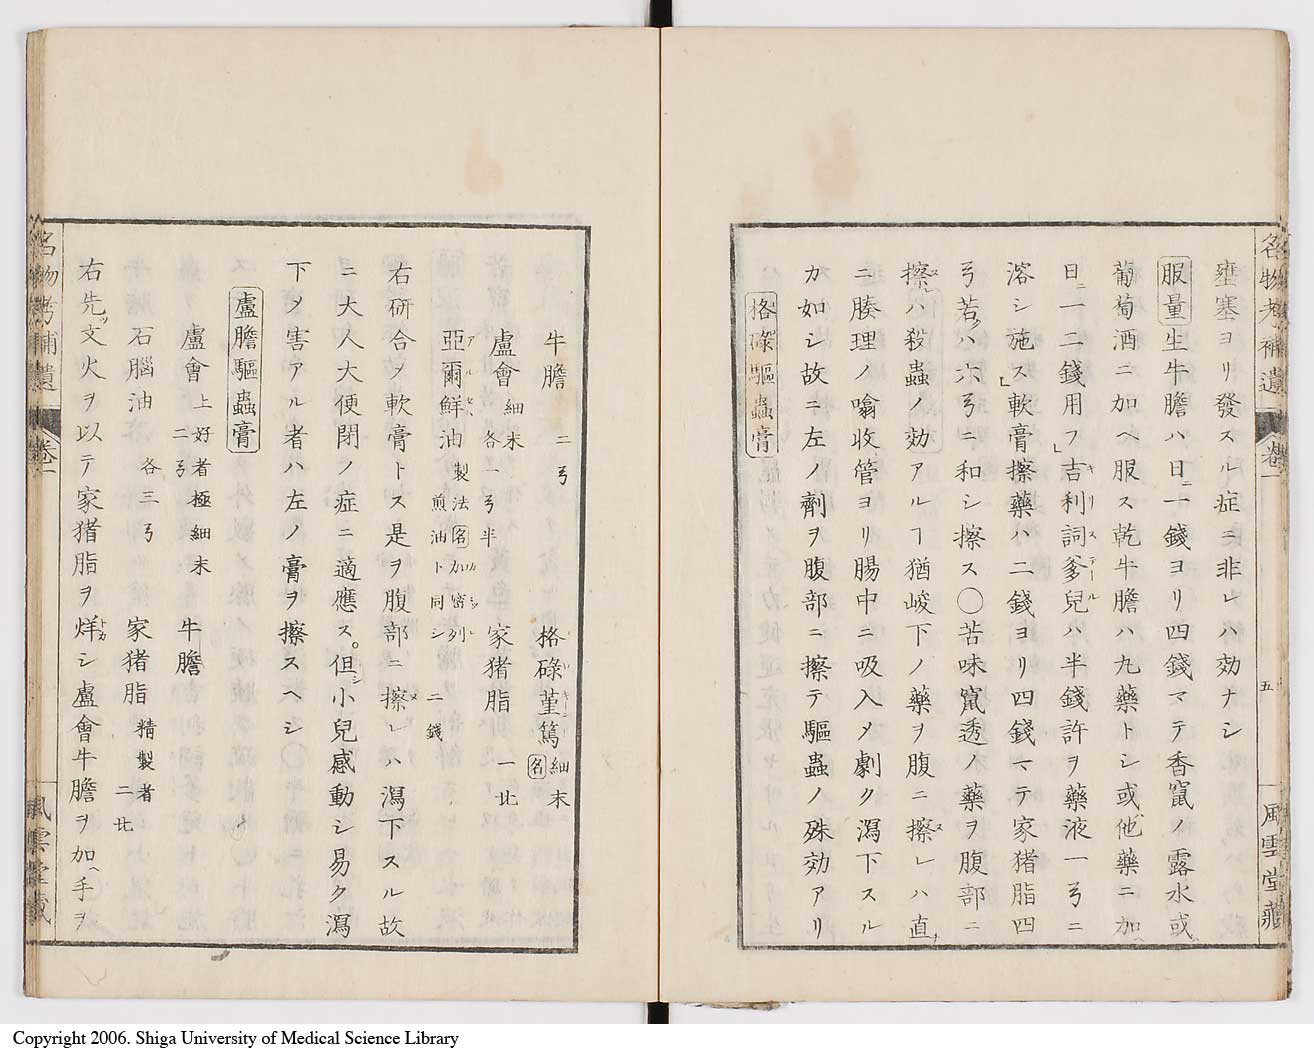 名物考補遺 卷一 五 風雲堂藏
壅塞ヨリ發スル症ニ非レハ効ナシ
服量 生牛膽ハ日ニ一錢ヨリ四錢マテ香竄ノ露水或
葡萄酒ニ加ヘ服ス乾牛膽ハ丸藥トシ或他藥ニ加ヘ
日ニ一二錢用フ」吉利詞爹兒ハ半錢許ヲ藥液一弓ニ
溶シ施ス」軟膏擦藥ハ二錢ヨリ四錢マテ家猪脂四
弓若クハ六弓ニ和シ擦ス〇苦味竄透ノ藥ヲ腹部ニ
擦レハ殺蟲ノ効アルヿ猶峻下ノ藥ヲ腹ニ擦レハ直ニ
ニ腠理ノ噏收管ヨリ腸中ニ吸入メ劇ク瀉下スル
カ如シ故ニ左ノ劑ヲ腹部ニ擦テ驅蟲ノ殊効アリ
格碌驅蟲膏
牛膽 二弓 格碌堇篤 細末 名
盧會 細末 各一弓半 家猪脂 一𠦃
亞爾鮮油 製法名加密列煎油ト同シ 二錢
右研合ノ軟膏トス是ヲ腹部ニ擦レハ瀉下スル故
ニ大人大便閉ノ症ニ適應ス。但シ小兒感動シ易ク瀉
下ノ害アル者ハ左ノ膏ヲ擦スヘシ
盧膽驅蟲膏
盧會 上好者極細末 二弓 牛膽
石腦油 各三弓 家猪脂 精製者 二
右先ツ文火ヲ以テ家猪脂ヲ烊シ盧會牛膽ヲ加ヘ手ヲ
名物考補遺 卷一 風雲堂藏
Copyright 2006. Shiga University of Medical Science Library